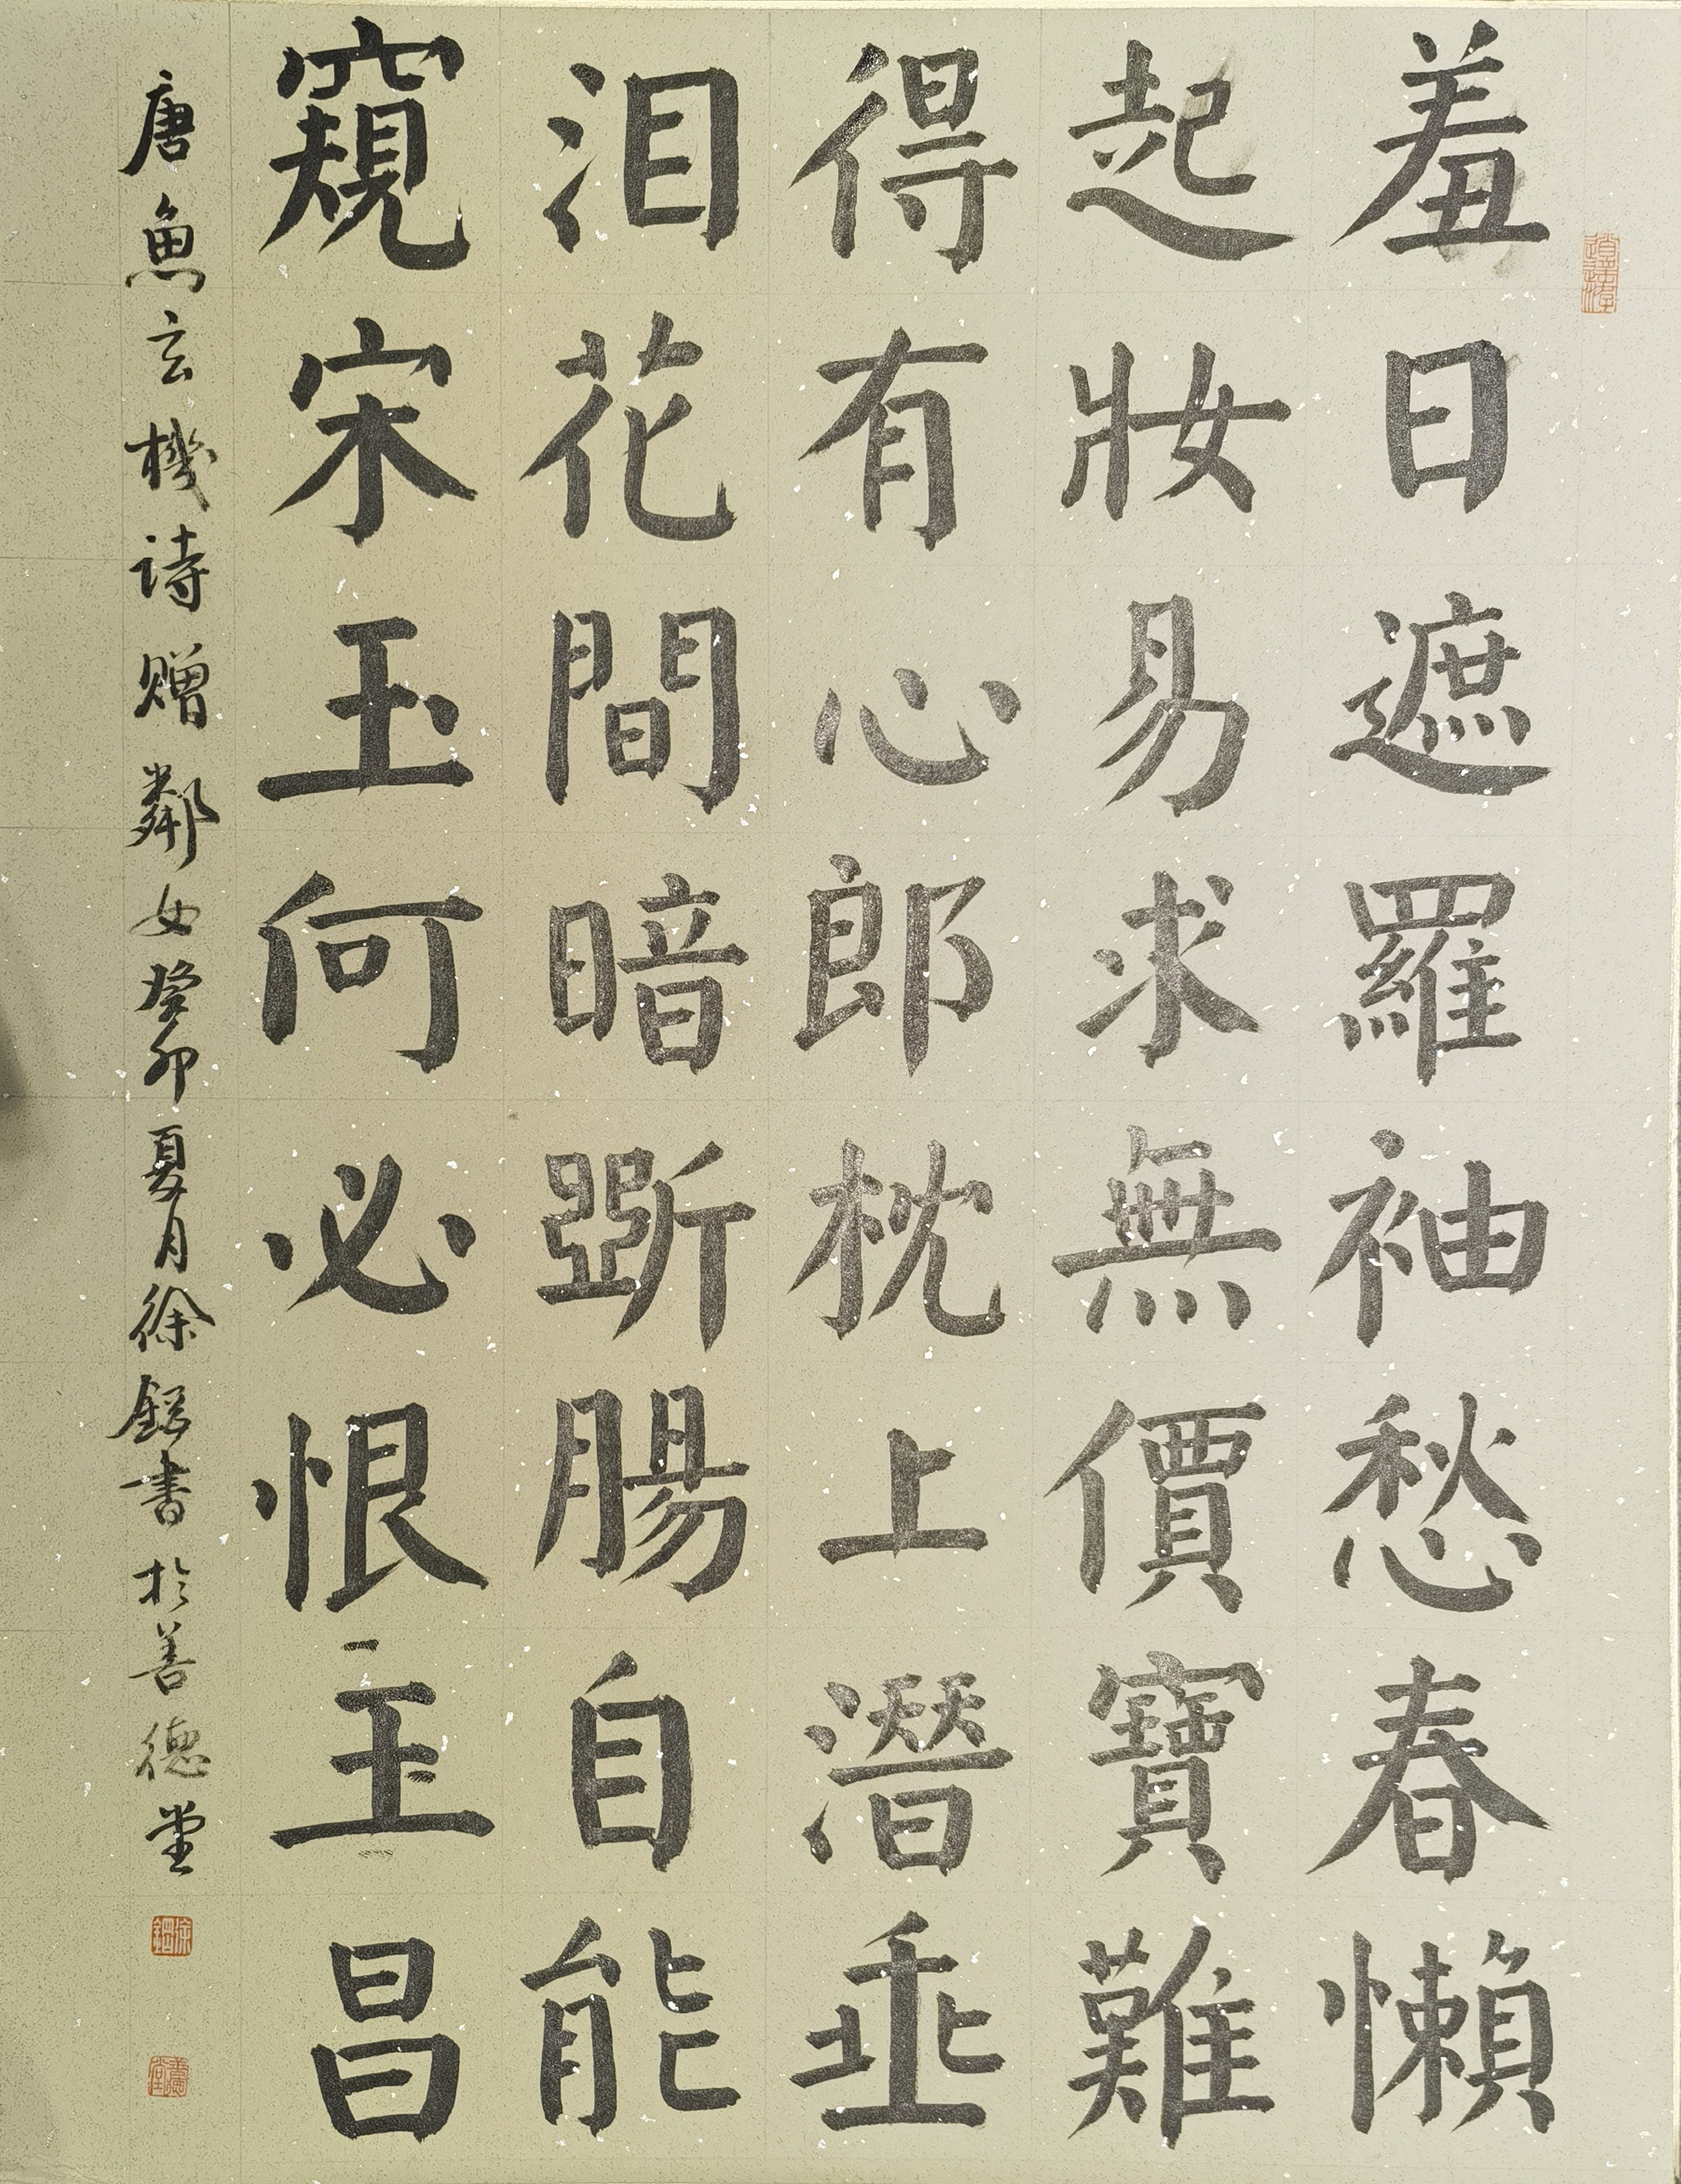 羞日遮羅袖愁春懶
起妝易求無價寶難
得有心郎枕上潛垂
泪花間暗斷腸自能
窺宋玉何必恨王昌
唐魚玄機诗贈鄰女癸卯夏月徐書於善德堂